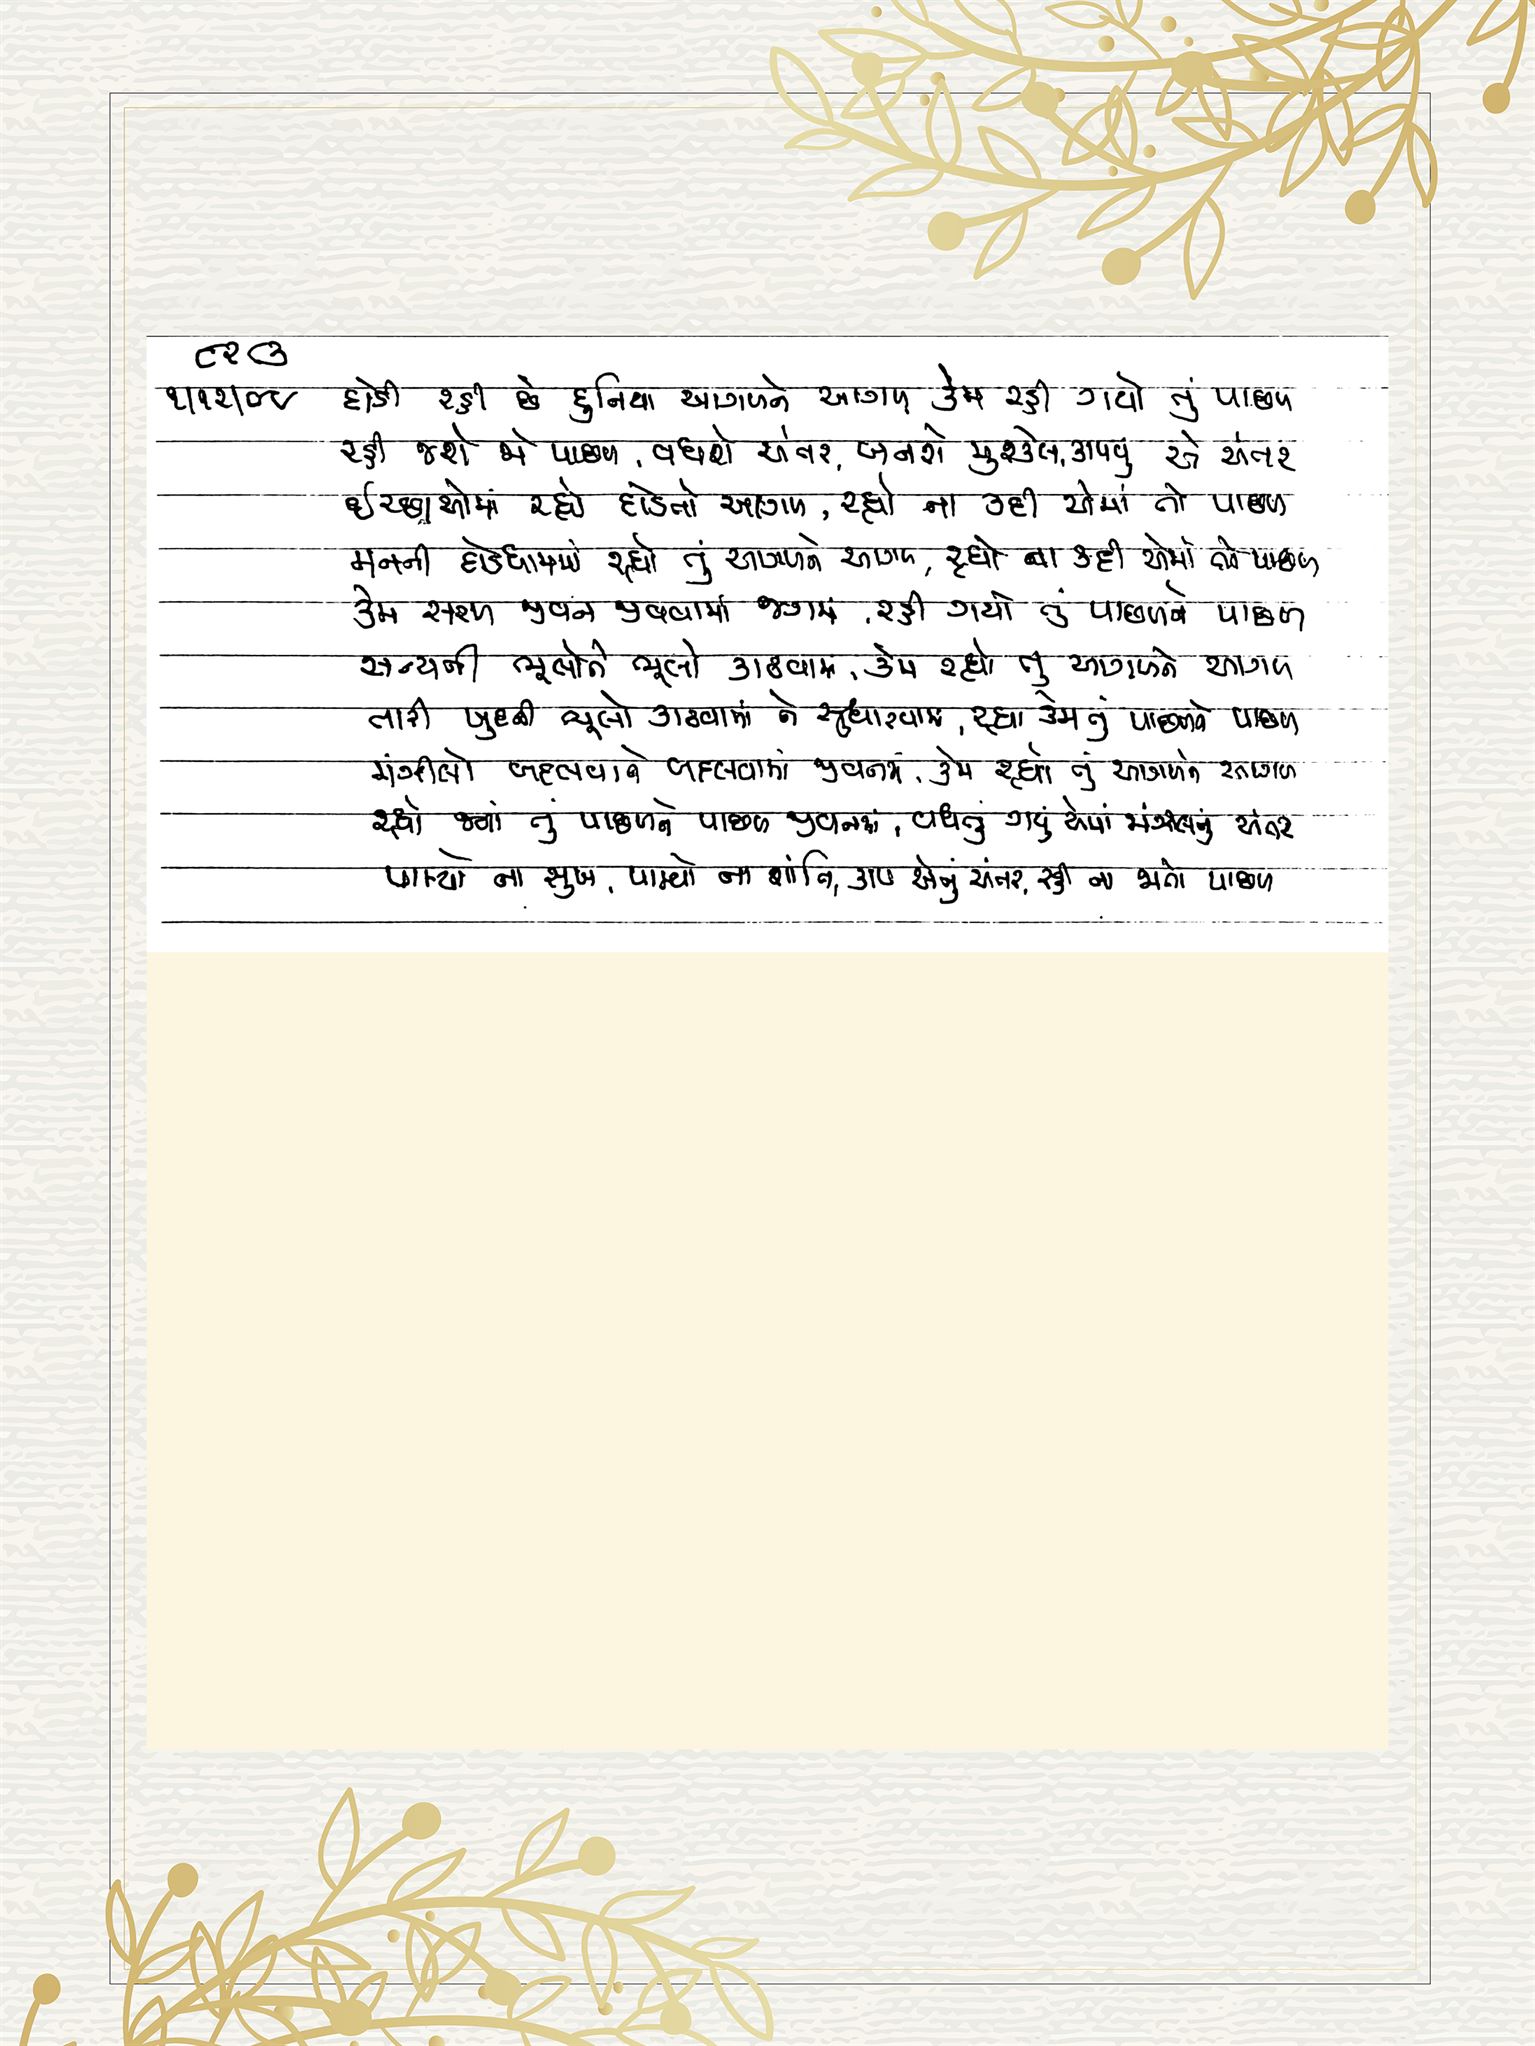 ૮૨૭
૧/૧૨/૦૮ દોડી રહી છે દુનિયા આગળને આગળ કેમ રહી ગયો તું પાછળ
રહી જશે જો પાછળ, વધશે અંતર, બનશે મુશ્કેલ, કાપવું એ અંતર
ઈચ્છાઓમાં રહ્યો દોડતો આગળ, રહ્યો ના કદી એમાં તો પાછળ
મનની દોડધામમાં રહ્યો તું આગળને આગળ, રહ્યો ના કદી એમાં તો પાછળ
કેમ સરળ જીવન જીવવામાં જગમાં, રહી ગયો તું પાછળને પાછળ
અન્યની ભૂલોને ભૂલો કાઢવામાં, કેમ રહ્યો તું આગળને આગળ
તારી ખુદની ભૂલો કાઢવામાં ને સુધારવામાં, રહ્યો કેમ તું પાછળને પાછળ
મંઝીલો બદલવાને બદલવામાં જીવનમાં, કેમ રહ્યો તું આગળને આગળ
રહ્યો જ્યાં તું પાછળને પાછળ જીવનમાં, વધતું ગયું એમાં મંઝીલનું અંતર
પામ્યો ના સુખ, પામ્યો ના શાંતિ, કાપ એનું અંતર, રહી ના જાતો પાછળ